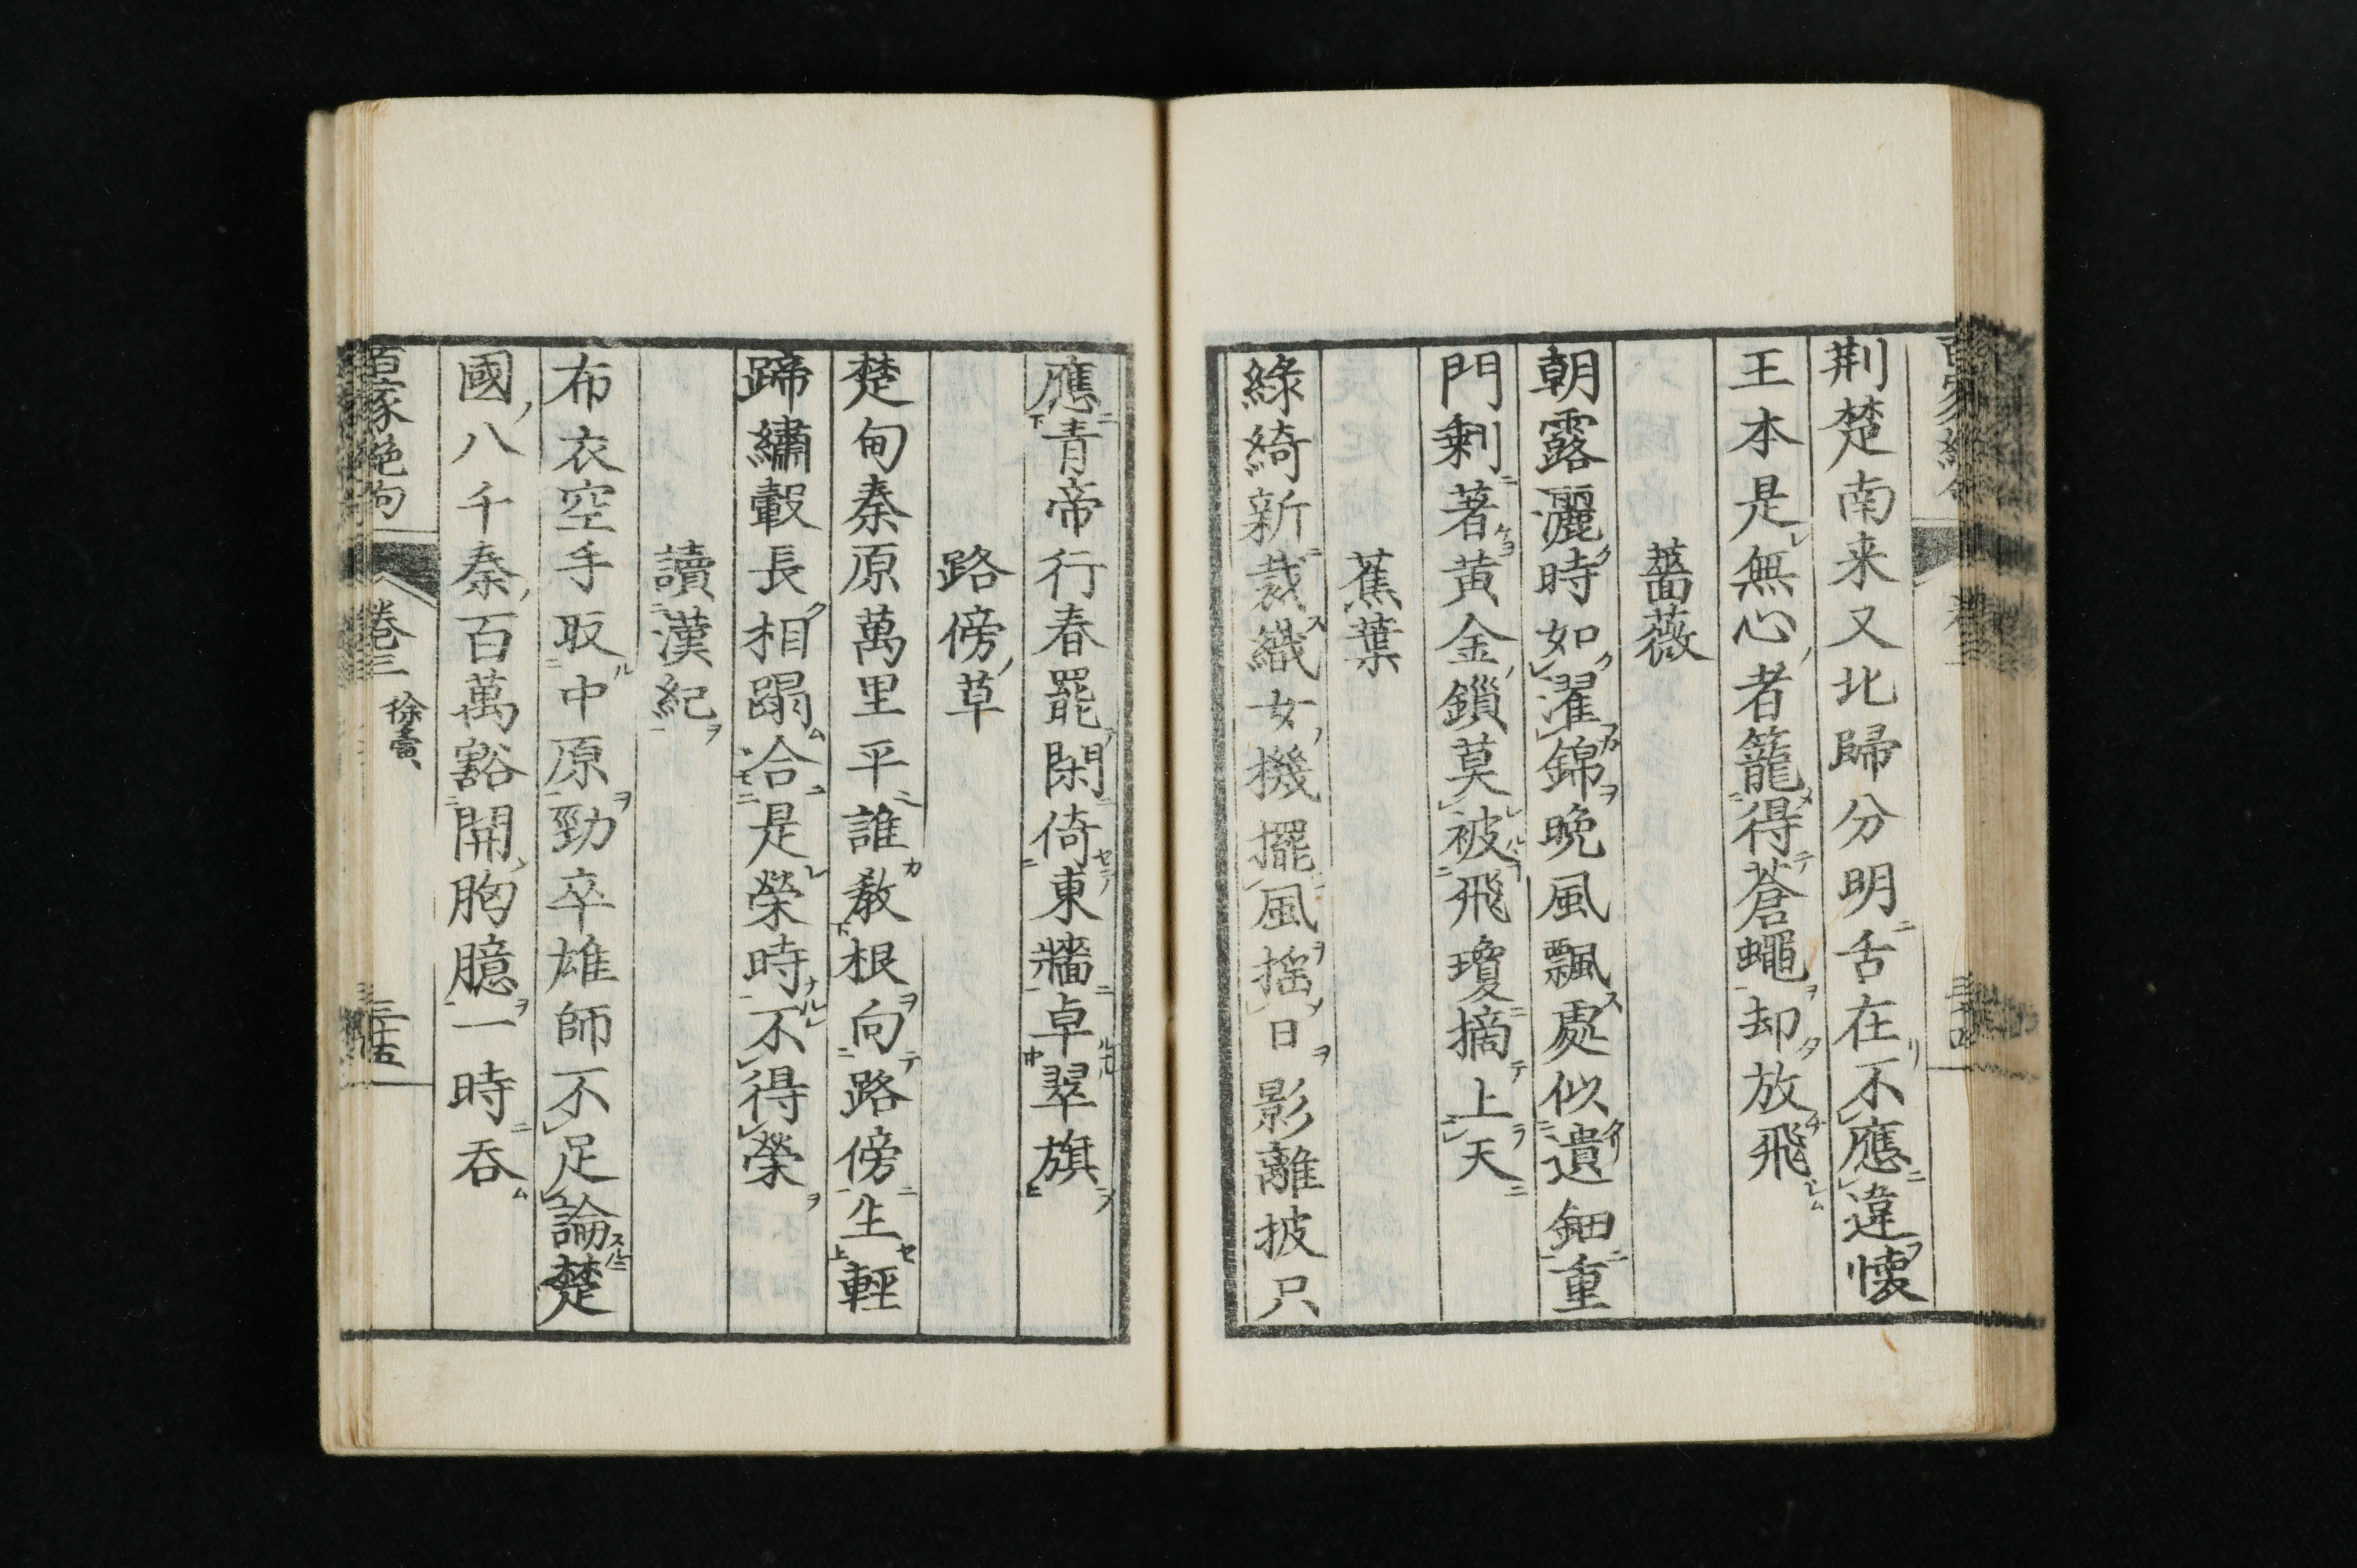 荆楚南来又北歸分明舌在不應違懐
王本是無心者籠得蒼蠅却放飛
薔薇
朝露灑時如濯錦晩風飄處似遺鈿重
門剩著黄金鎻莫被飛瓊摘上天
蕉葉
綠綺新裁織女機擺風揺日影離披只
應青帝行春罷閑倚東牆卓翠旗
路傍草
楚甸秦原萬里平誰教根向路傍生輕
蹄繡轂長相蹋合是榮時不得榮
讀漢紀
布衣空手取中原勁卒雄師不足論楚
國八千秦百萬豁開胸臆一時吞
百家絶句
卷三
徐夤
三十五